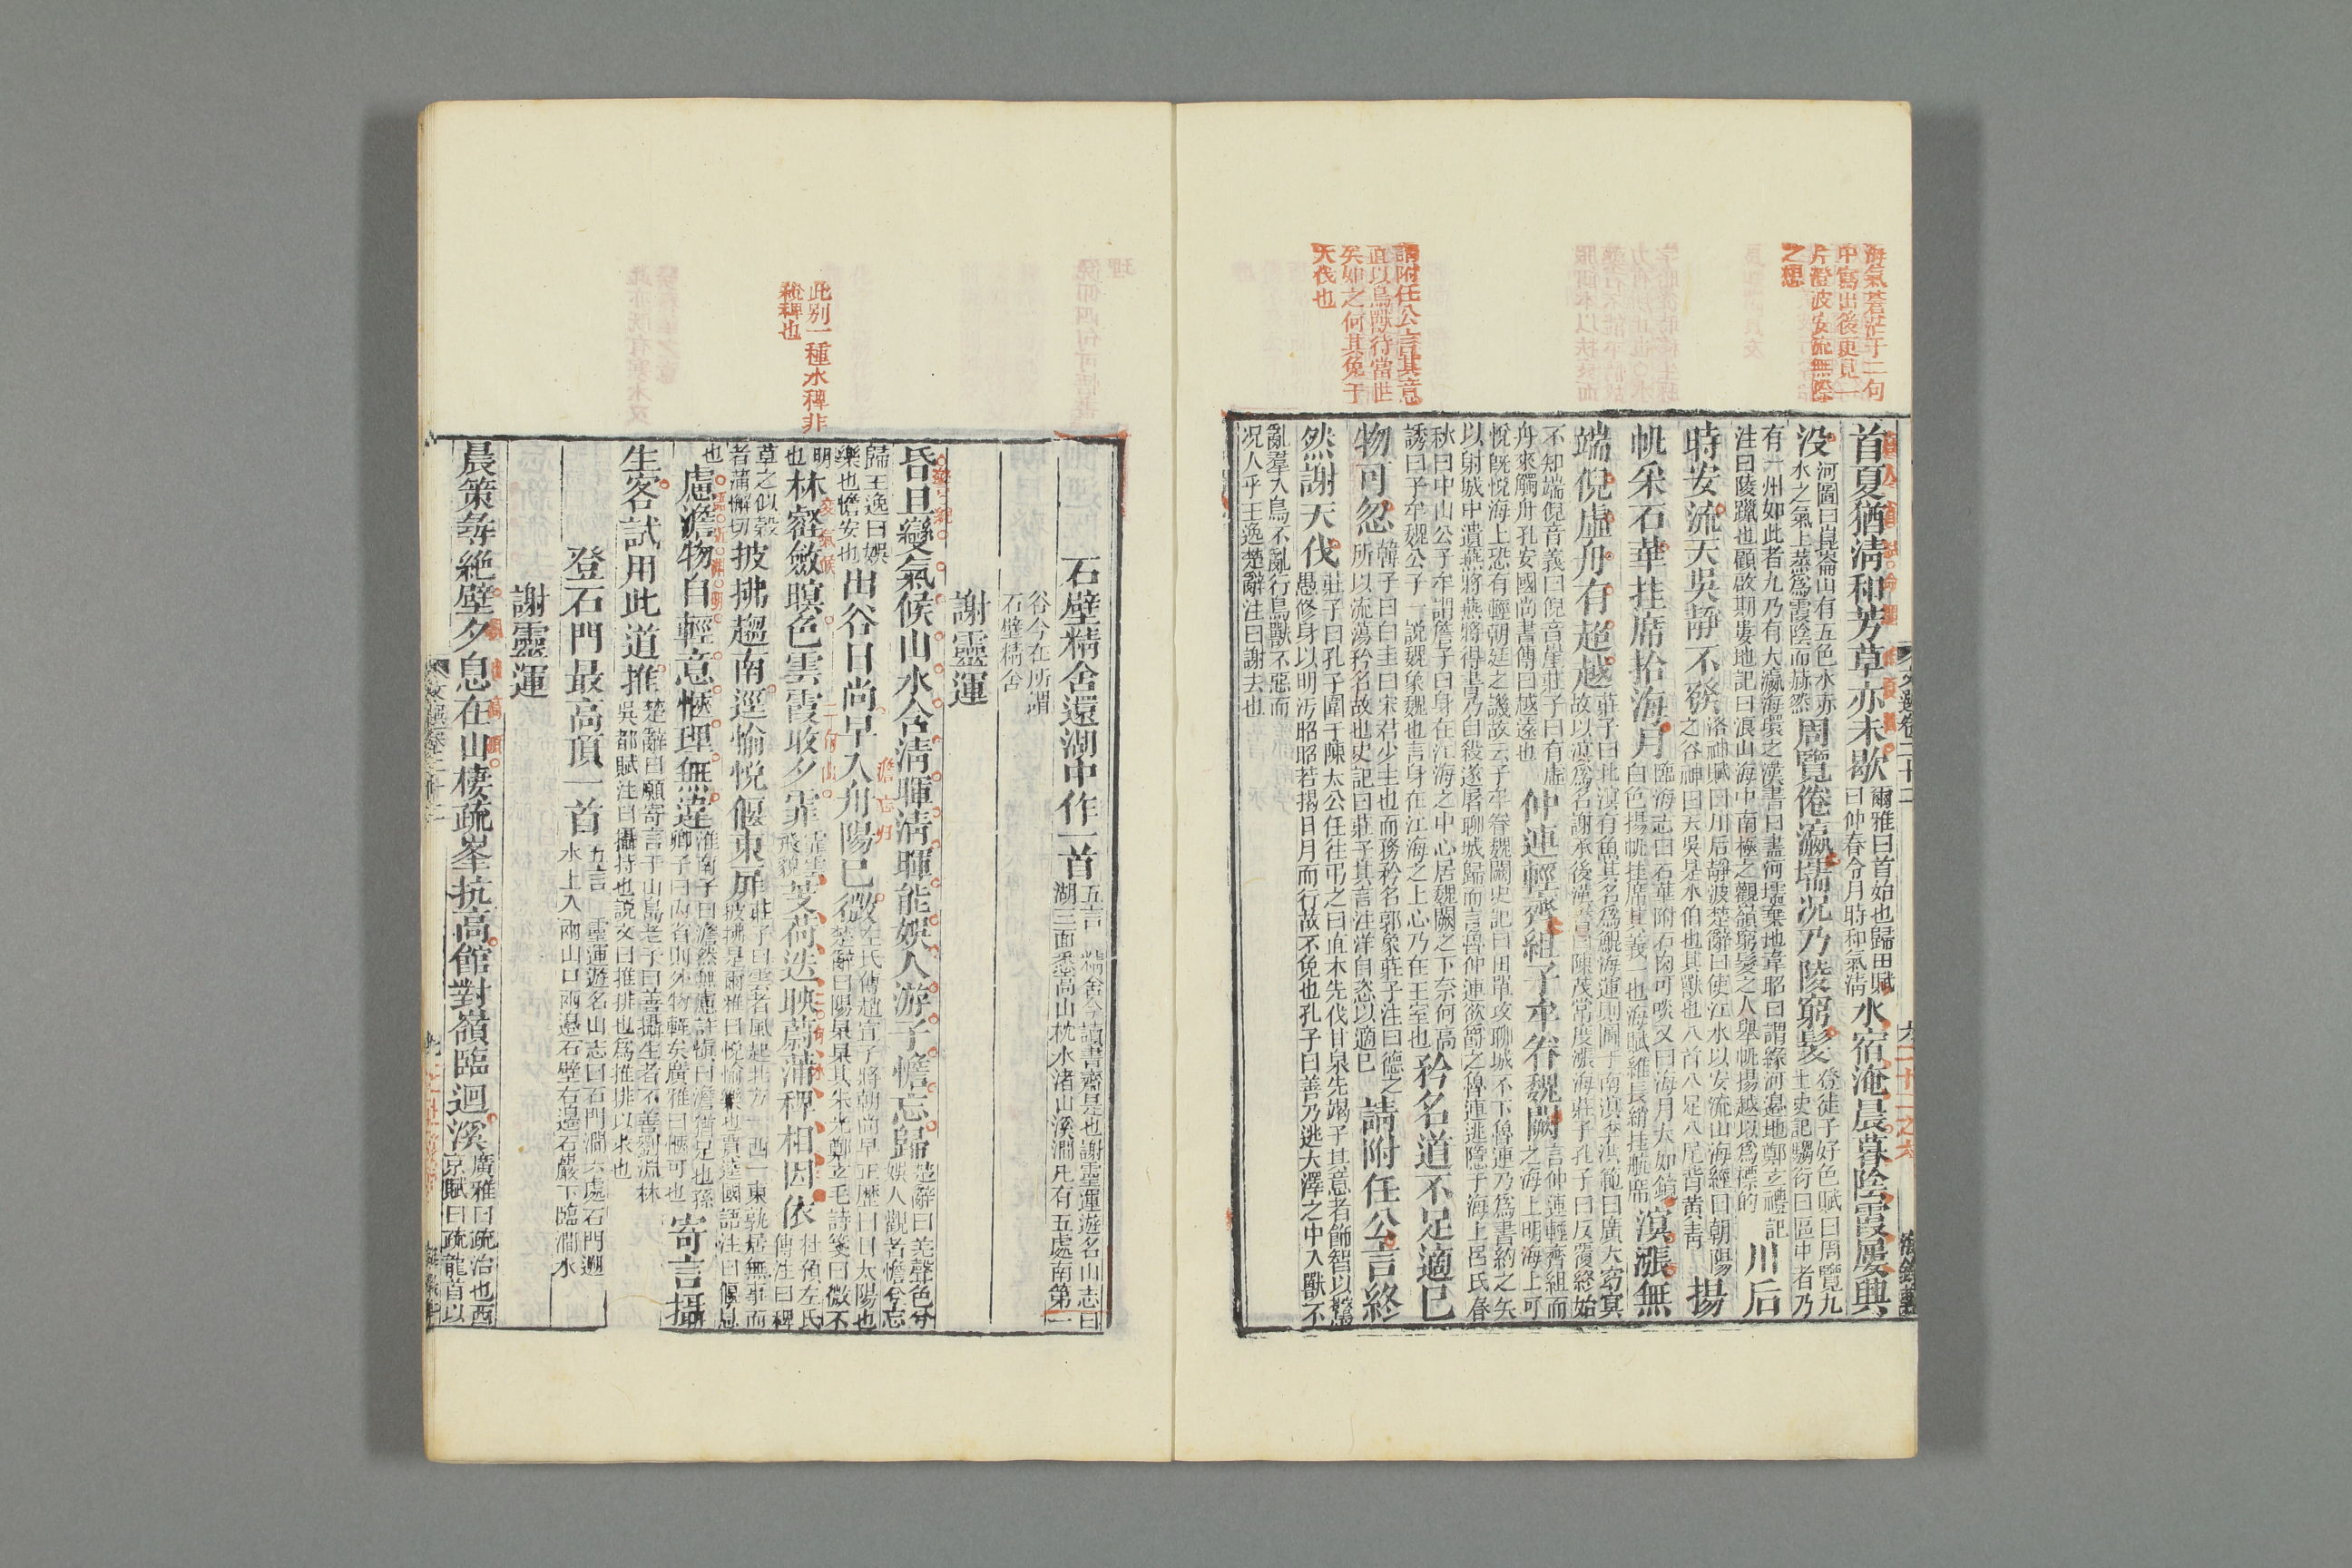 海氣蒼茫于二句
中寫出後更見一
片澄波安流無際
之想
請附任公言其意
直以鳥獸行當世
矣如之何其免于
天伐也
首夏猶清和芳草亦未歇爾雅曰首始也歸田賦曰仲春令月時和氣清水宿淹晨暮陰霞屢興
没河圖曰崑崙山有五色水赤水之氣上蒸爲霞陰而赫然周覽倦瀛壖况乃陵窮髮登徒子好色賦曰周覽九土史記騶衍曰區中者乃
有一州如此者九乃有大瀛海環之漢書曰盡河壖棄地韋昭曰謂緣河邊地鄭玄禮記注曰陵躐也顧啟期婁地記曰浪山海中南極之觀嶺窮髮之人舉帆揚越以爲標的川后
時安流天吳靜不發洛神賦曰川后靜波楚辭曰使江水以安流山海經曰朝陽之谷神曰天吳是水伯也其獸也八首八足八尾背黄青揚
帆采石華挂席拾海月臨海志曰石華附石肉可啖又曰海月大如鏡白色揚帆挂席其義一也海賦維長綃挂帆席溟漲無
端倪虛舟有超越莊子曰北溟有魚其名爲鯤海運則圖于南溟李洪範曰廣大窈冥故以溟爲名謝承後漢書曰陳茂常度漲海莊子孔子曰反覆終始
不知端倪音義曰倪音崖莊子曰有虛舟來觸舟孔安國尚書傳曰越遠也仲連輕齊組子牟眷魏闕言仲連輕齊組而之海上明海上可
悅既悅海上恐有輕朝廷之譏故云子牟眷魏闕史記曰田單攻聊城不下魯連乃爲書約之矢以射城中遺燕將燕將得書乃自殺遂屠聊城歸而言魯仲連欲爵之魯連逃隱于海上呂氏春
秋曰中山公子牟謂詹子曰身在江海之中心居魏闕之下奈何高誘曰子牟魏公子一說魏象魏也言身在江海之上心乃在王室也矜名道不足適已
物可忽韓子曰白圭曰宋君少主也而務矜名郭象莊子注曰德之所以流蕩矜名故也史記曰莊子其言洸洋自恣以適已請附任公言終
然謝天伐莊子曰孔子圍于陳太公任往弔之曰直木先伐甘泉先竭子其意者飾智以驚愚修身以明汚昭昭若揭日月而行故不免也孔子曰善乃逃大澤之中入獸不
亂羣入鳥不亂行鳥獸不惡而况人乎王逸楚辭注曰謝去也
此别一種水稗非
稊稗也
石壁精舍還湖中作一首五言 精舍今讀書齋是也謝靈運遊名山志曰湖三面悉高山枕水渚山溪澗凡有五處南第一
谷今在所謂石壁精舍
謝靈運
昏旦變氣候山水含清暉清暉能娛人游子憺忘歸楚辭曰羌聲色兮娛人觀者憺兮忘
歸王逸曰娛樂也憺安也出谷日尚早入舟陽已微左氏傳趙宣子將朝尚早正歷曰日太陽也楚辭曰陽杲杲其朱光鄭玄毛詩箋曰微不
明也林壑斂暝色雲霞收夕霏霏雲飛貌芰荷迭映蔚蒲稗相因依杜預左氏傳注曰稗
草之似穀者蒲懈切披拂趨南逕愉悅偃東扉莊子曰雲者風起北方一西一東孰居無事而披拂是爾雅曰悅愉樂也賈逵國語注曰偃息
也慮澹物自輕意愜理無違淮南子曰澹然無慮許慎曰澹猶足也孫卿子曰内省則外物輕矣廣雅曰愜可也寄言攝
生客試用此道推楚辭曰願寄言于山鳥老子曰善攝生者不善劉淵林吳都賦注曰攝持也説文曰推排也爲推排以求也
登石門最高頂一首五言 靈運遊名山志曰石門澗六處石門遡水上入兩山口兩邊石壁右邊石巖下臨澗水
謝靈運
晨策尋絶壁夕息在山棲疏峯抗高館對嶺臨迴溪廣雅曰疏治也西京賦曰疏龍首以